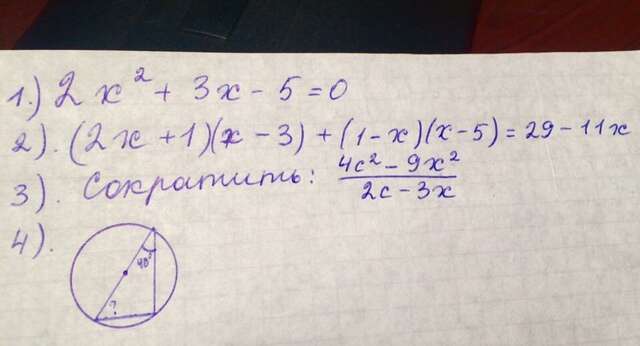 1.) 2x² + 3x - 5 = 0
2). (2x + 1)(x - 3) + (1 - x)(x - 5) = 29 - 11x
3). Сократить: (4c² - 9x²)/(2c - 3x)
4).
40°
?